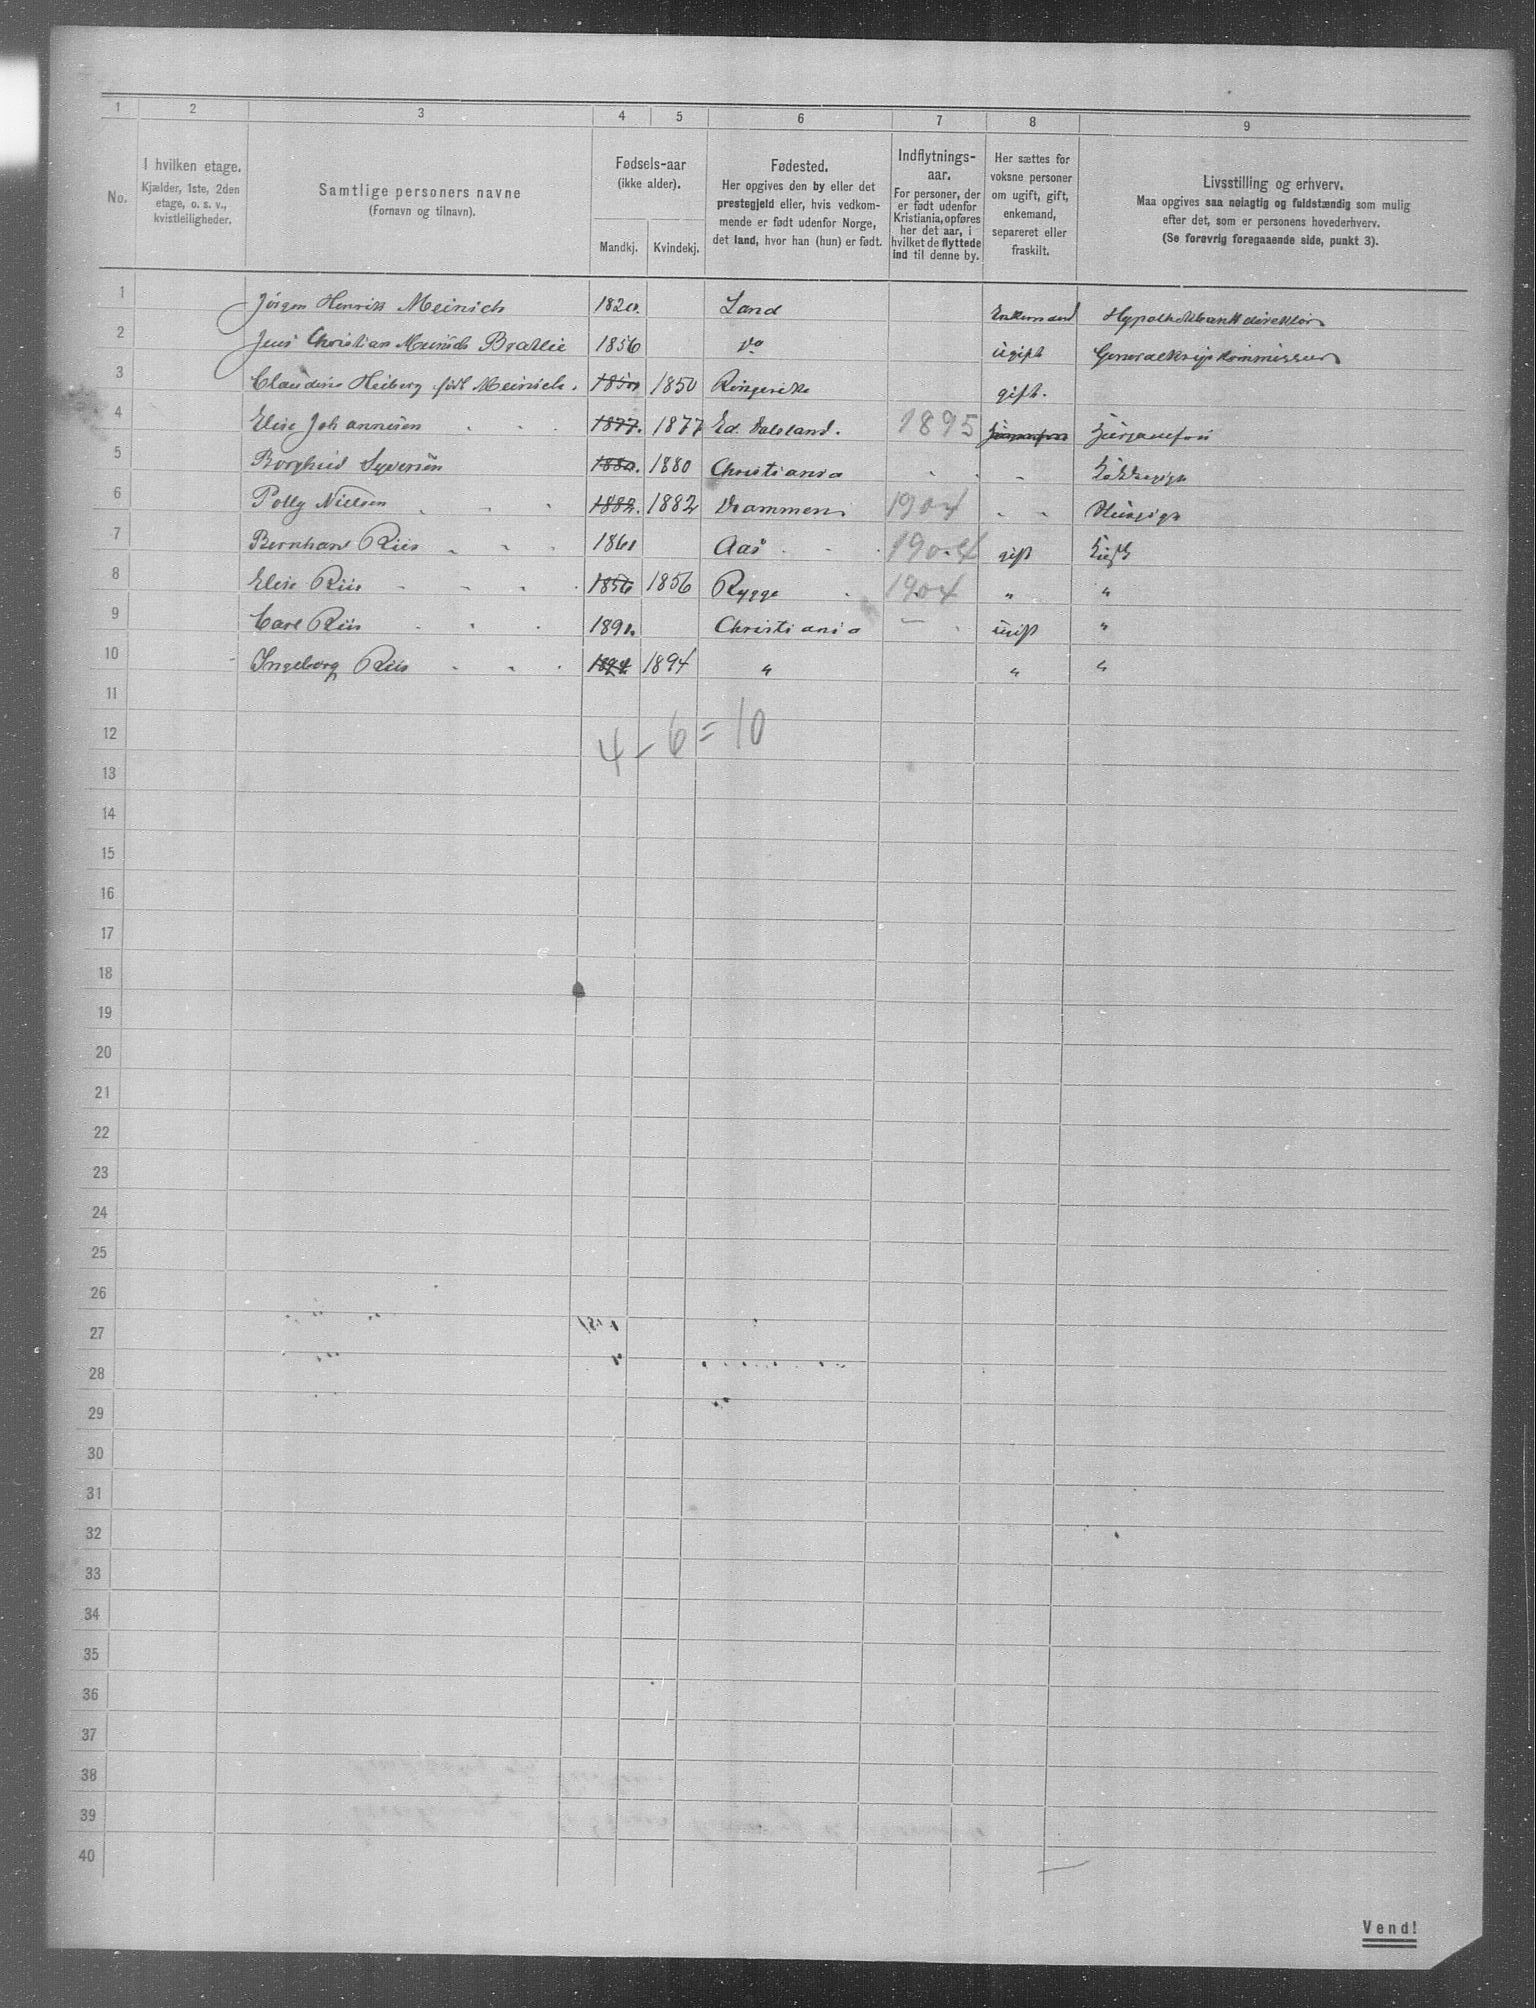 1 2 3 4 5 6 7 8 9
No.
I hvilken etage.
Kjælder, 1ste, 2den
etage, o. s. v.,
kvistleiligheder.
Samtlige personers navne
(Fornavn og tilnavn).
Fødsels-aar
(ikke alder).
Mandkj. Kvindekj.
Fødested.
Her opgives den by eller det
prestegjeld eller, hvis vedkom-
mende er født udenfor Norge,
det land, hvor han (hun) er født.
Indflytnings-
aar.
For personer, der
er født udenfor
Kristiania, opføres
her det aar, i
hvilket de flyttede
ind til denne by.
Her sættes for
voksne personer
om ugift, gift,
enkemand,
separeret eller
fraskilt.
Livsstilling og erhverv.
Maa opgives saa nøiagtig og fuldstændig som mulig
efter det, som er personens hovederhverv.
(Se forøvrig foregaaende side, punkt 3).
1 Jörgen Henrik Meinich 1820. Land Enkemand Hypothekbankdirektör
2 Jens Christian Meinich Bratlie 1856 do ugift Generalkrigskommissær
3 Claudine Heiberg född Meinich. 1850 1850 Ringerike gift.
4 Elise Johannesen 1877. 1877 Ed. Dalsland. 1895
5 Borghild Syversen 1880. 1880 Christiania Kokkepige
6 Polly Nielsen 1882. 1882 Drammen 1904 Huspige
7 Bernhard Riis 1861 Aas 1904 gift
8 Elise Riis 1856 1856 Rygge 1904 " "
9 Carl Riis 1891. Christiania — ugift "
10 Ingeborg Riis 1894 1894 " " "
11
12 4 - 6 = 10
13
14
15
16
17
18
19
20
21
22
23
24
25
26
27
28
29
30
31
32
33
34
35
36
37
38
39
40
Vend!